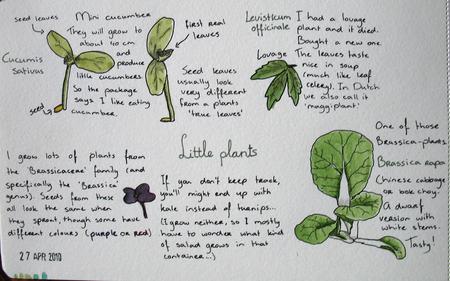 seed leaves
Mini cucumber
They will grow to
about 40 cm
and
produce
little cucumbers.
So the package
says. I like eating
cucumber.
Cucumis
Sativus
seed
first real
leaves
Seed leaves
usually look
very different
from a plants
'true leaves'
Levisticum
officinale
Lovage
I had a lovage
plant and it died.
Bought a new one.
The leaves taste
nice in soup
(much like leaf
celery). In Dutch
we also call it
'maggiplant'
Little plants
I grow lots of plants from
the 'Brassicaceae' family (and
specifically the 'Brassica'
genus). Seeds from these
all look the same when
they sprout, though some have
different colours (purple or red)
If you don't keep track,
you'll might end up with
kale instead of turnips...
(I grow neither, so I mostly
have to wonder what kind
of salad grows in that
container...)
One of those
Brassica-plants.
Brassica rapa
(chinese cabbage
or bok choy.
A dwarf
version with
white stems.
Tasty!
27 APR 2010